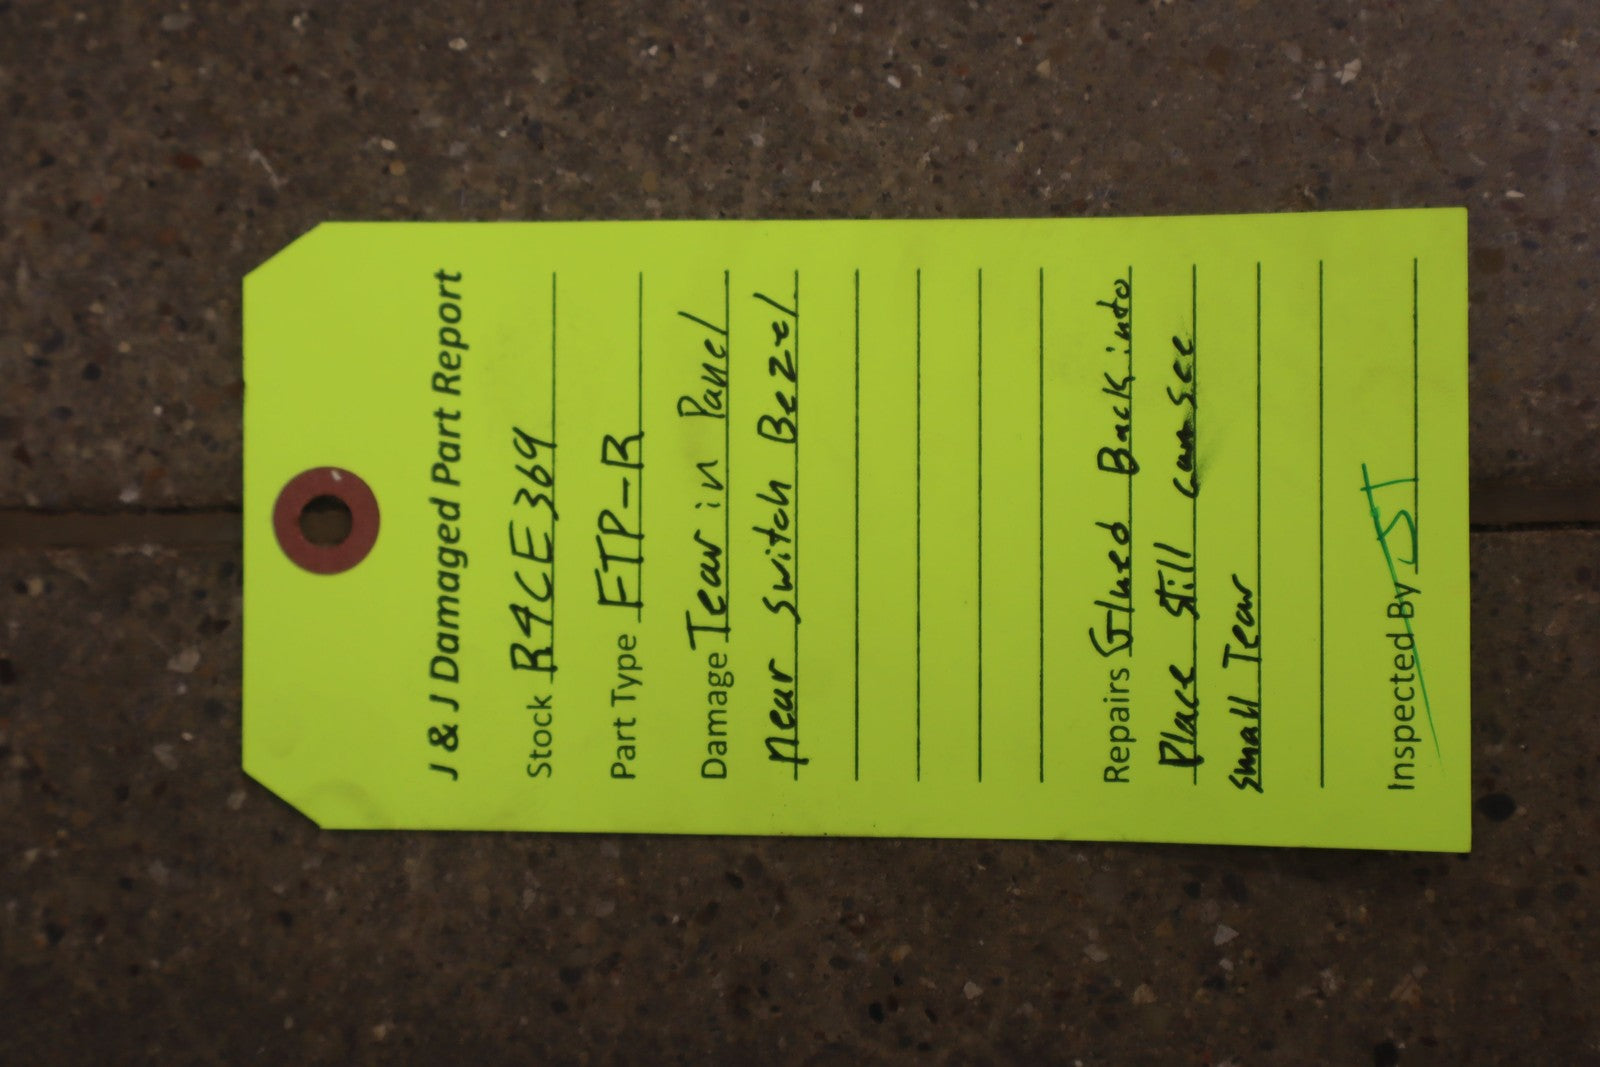 J & J Damaged Part Report
Stock R4CE369
Part Type FTP-R
Damage Tear in Panel
near switch Bezel
Repairs Glued Back into
Place still can see
small Tear
Inspected By JJ